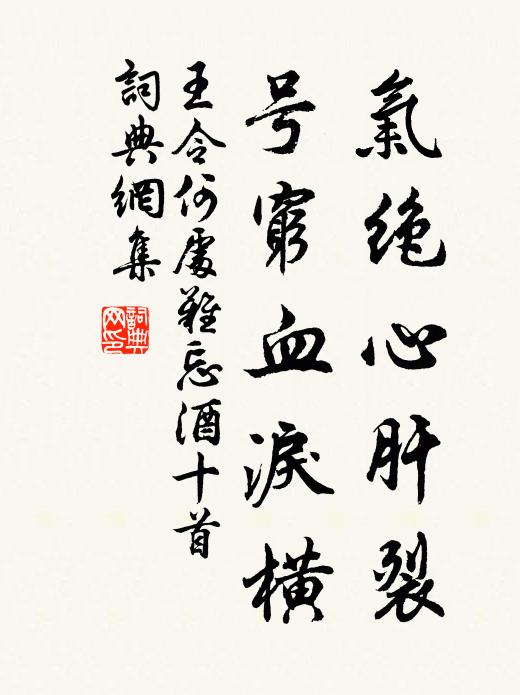 氣絶心肝裂
号窮血淚橫
王令何處難忘酒十首
詞典網集
詞典网印